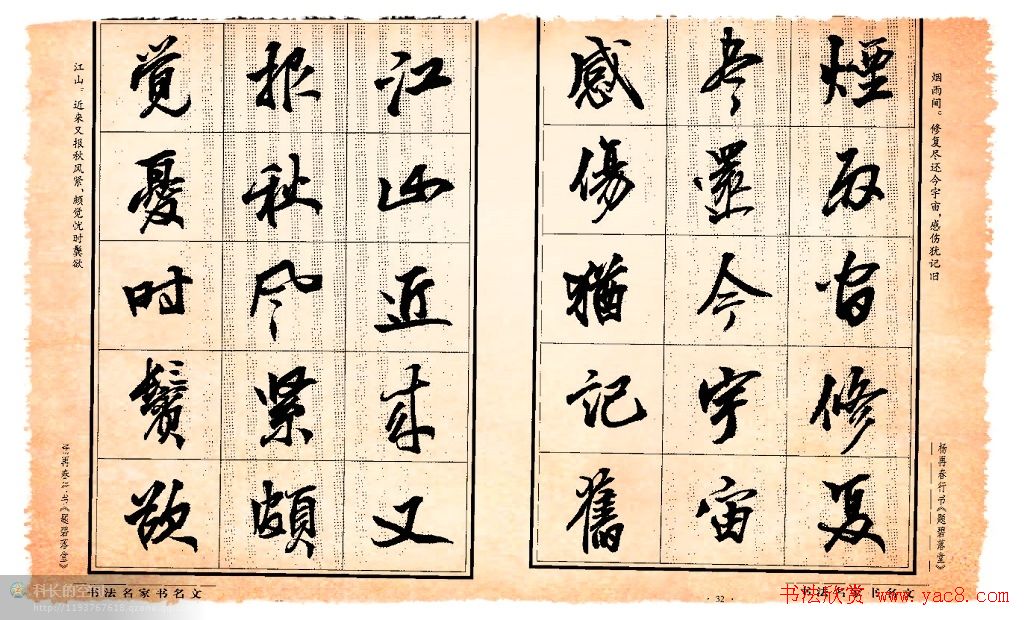 烟雨间。修复尽还今宇宙,感伤犹记旧
煙雨間修复
尽還今宇宙
感傷猶記舊
杨再春行书《题碧落堂》
书法名家书名文
· 32 ·
江山近来又
报秋风紧頗
覚憂时鬓欲
江山。近来又报秋风紧,颇觉忧时鬓欲
杨再春行书《题碧落堂》
书法名家书名文
科长的空间
http://1193767618.qzone.qq.com
书法欣赏 www.yac8.com